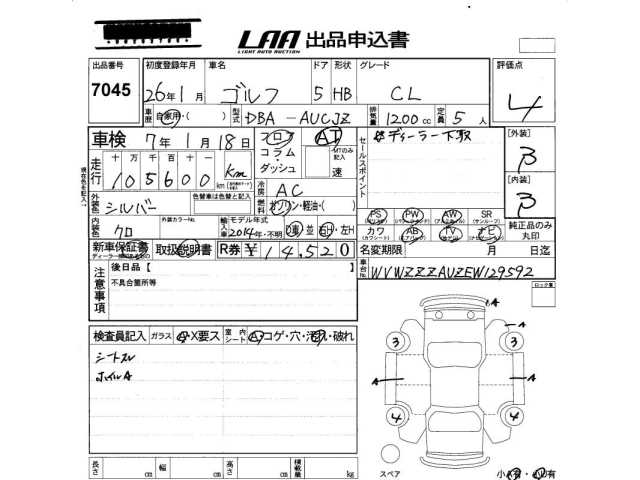 LAA 出品申込書
LIGHT AUTO AUCTION
出品番号 初度登録年月 車名 ドア 形状 グレード 評価点
7045 26年1月 ゴルフ 5 HB CL 4
車歴 自家用・( ) 型式 DBA-AUCJZ 排気量 1200cc 定員 5人
車検 7年1月18日 フロア コラム・ダッシュ AT MTのみ記入 速
セールスポイント ディーラー下取
[外装] B
走行 十 万 千 百 十 一
105600 km
冷房 AC
[内装] B
外装色 シルバー 色替車は色替と記入
燃料 ガソリン・軽油・( )
PS PW AW SR (サンルーフ)
内装色 クロ 外装カラーNo. 輸入車 モデル年式 2014年・不明 D車 並 右H・左H
カワ AB TV ナビ
純正品のみ丸印
新車保証書 取扱説明書 R券 ¥14,520
名変期限 月 日迄
車台No. WVWZZZAUZEW129592
注意事項 後日品【
不具合箇所等
ロック車
検査員記入 ガラス A・X要ス 室内シート A・コゲ・穴・汚れ・破れ
シートスレ
ホイルA
A
A
3 3
A A
4 4
スペア
小A有・小U有
長さ cm 幅 cm 高さ cm 積載量 kg